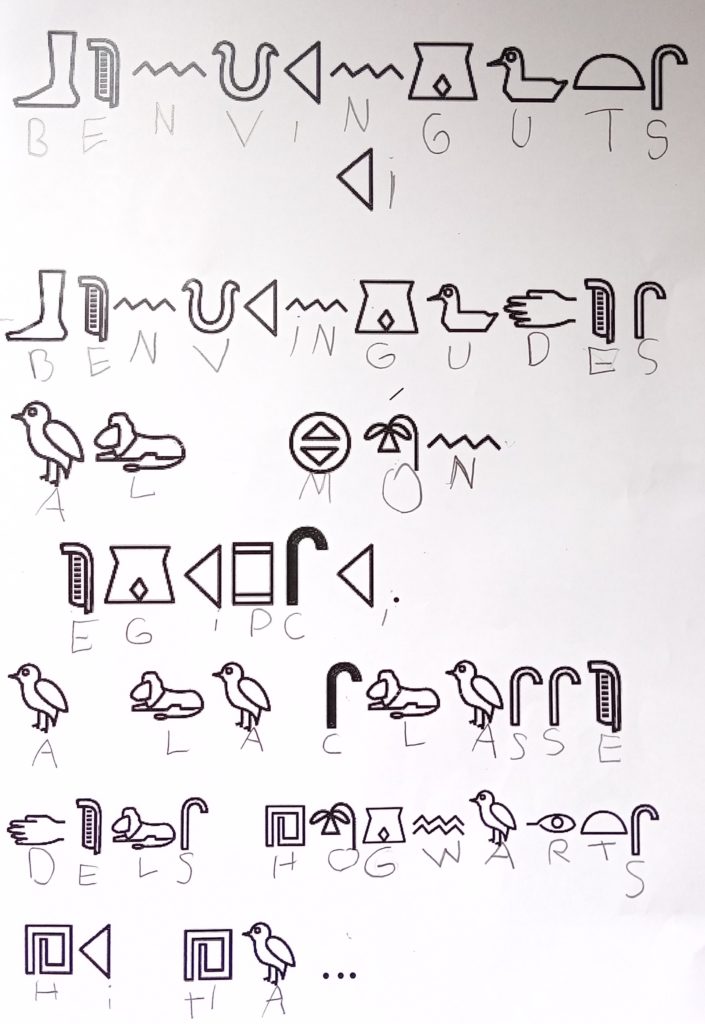 BENVINGUTS
i
BENVINGUDES
AL MÓN
EGiPCi.
A LA CLASSE
DELS HOGWARTS
Hi HA...